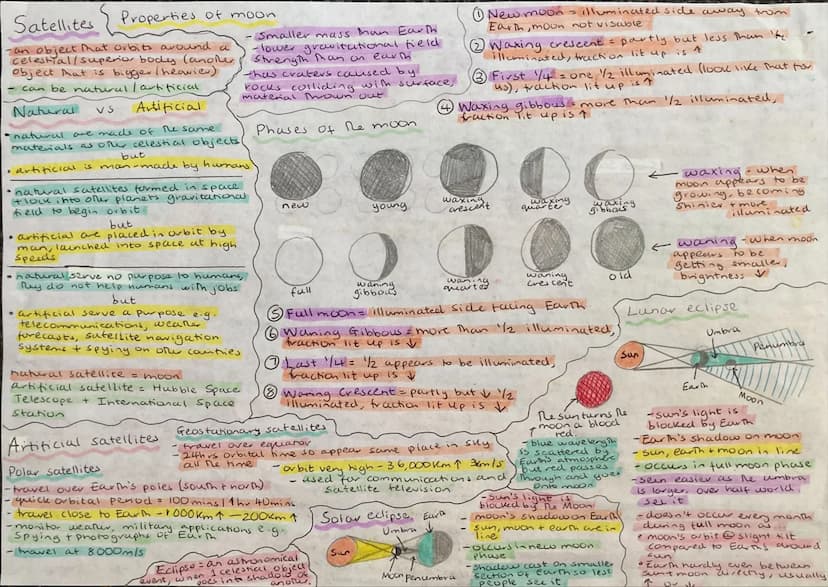 Satellites
- an object that orbits around a
celestial/superior body (another
object that is bigger/heavier)
- can be natural/artificial
Natural vs Artificial
• natural are made of the same
materials as other celestial objects
but
• artificial is man-made by humans
• natural satellites formed in space
+ lock into other planets gravitational
field to begin orbit
but
• artificial are placed in orbit by
man, launched into space at high
speeds
• natural serve no purpose to humans,
they do not help humans with jobs
but
• artificial serve a purpose e.g.
telecommunications, weather
forecasts, satellite navigation
systems + spying on other countries
natural satellite = moon
artificial satellite = Hubble Space
Telescope + International Space
Station
Properties of moon
- smaller mass than Earth
- lower gravitational field
strength than on earth
- has craters caused by
rocks colliding with surface,
material thrown out
① New moon = illuminated side away from
Earth, moon not visable
② Waxing crescent = partly but less than 1/2
illuminated, fraction lit up is ↑
③ First 1/4 = one 1/2 illuminated (look like that for
us), fraction lit up is ↑
④ Waxing gibbous = more than 1/2 illuminated,
fraction lit up is ↑
Phases of the moon
new
young
waxing
crescent
waxing
quarter
waxing
gibbous
← waxing - when
moon appears to be
growing, becoming
shinier + more
illuminated
full
waning
gibbous
waning
quarter
waning
crescent
old
← waning - when moon
appears to be
getting smaller,
brightness ↓
⑤ Full moon = illuminated side facing Earth
⑥ Waning Gibbous = more than 1/2 illuminated,
fraction lit up is ↓
⑦ Last 1/4 = 1/2 appears to be illuminated,
fraction lit up is ↓
⑧ Waning Crescent = partly but ↓ 1/2
illuminated, fraction lit up is ↓
Lunar eclipse
Sun
Umbra
Penumbra
Earth
Moon
The sun turns the
moon a blood
red
- blue wavelength
is scattered by
Earth's atmosphere
but red passes
through and goes
onto moon
- sun's light is
blocked by Earth
- Earth's shadow on moon
- sun, earth + moon in line
- occurs in full moon phase
- seen easier as the umbra
is larger, over half world
sees it
- doesn't occur every month
during full moon as
moon's orbit @ slight tilt
compared to Earth's around
sun
- Earth hardly even between
sun + moon
Artificial satellites
Polar satellites
- travel over Earth's poles (south + north)
- quick orbital period = 100 mins / 1hr 40min
- travel close to Earth - 1000km ↑ - 200km ↑
- monitor weather, military applications e.g.
spying + photographs of Earth
- travel at 8000m/s
Geostationary satellites
- travel over equator
- 24hrs orbital time so appear same place in sky
all the time
- orbit very high - 36,000km ↑
- used for communications and
satellite television
Eclipse = an astronomical
event, when 1 celestial object
goes into shadow of
another
Solar eclipse
Sun
Umbra
Earth
Moon
Penumbra
- Sun's light is
blocked by the Moon
- moon's shadow on Earth
- sun, moon + earth are in
line
- occurs in new moon
phase
- shadow cast on smaller
section of Earth so less
people see it